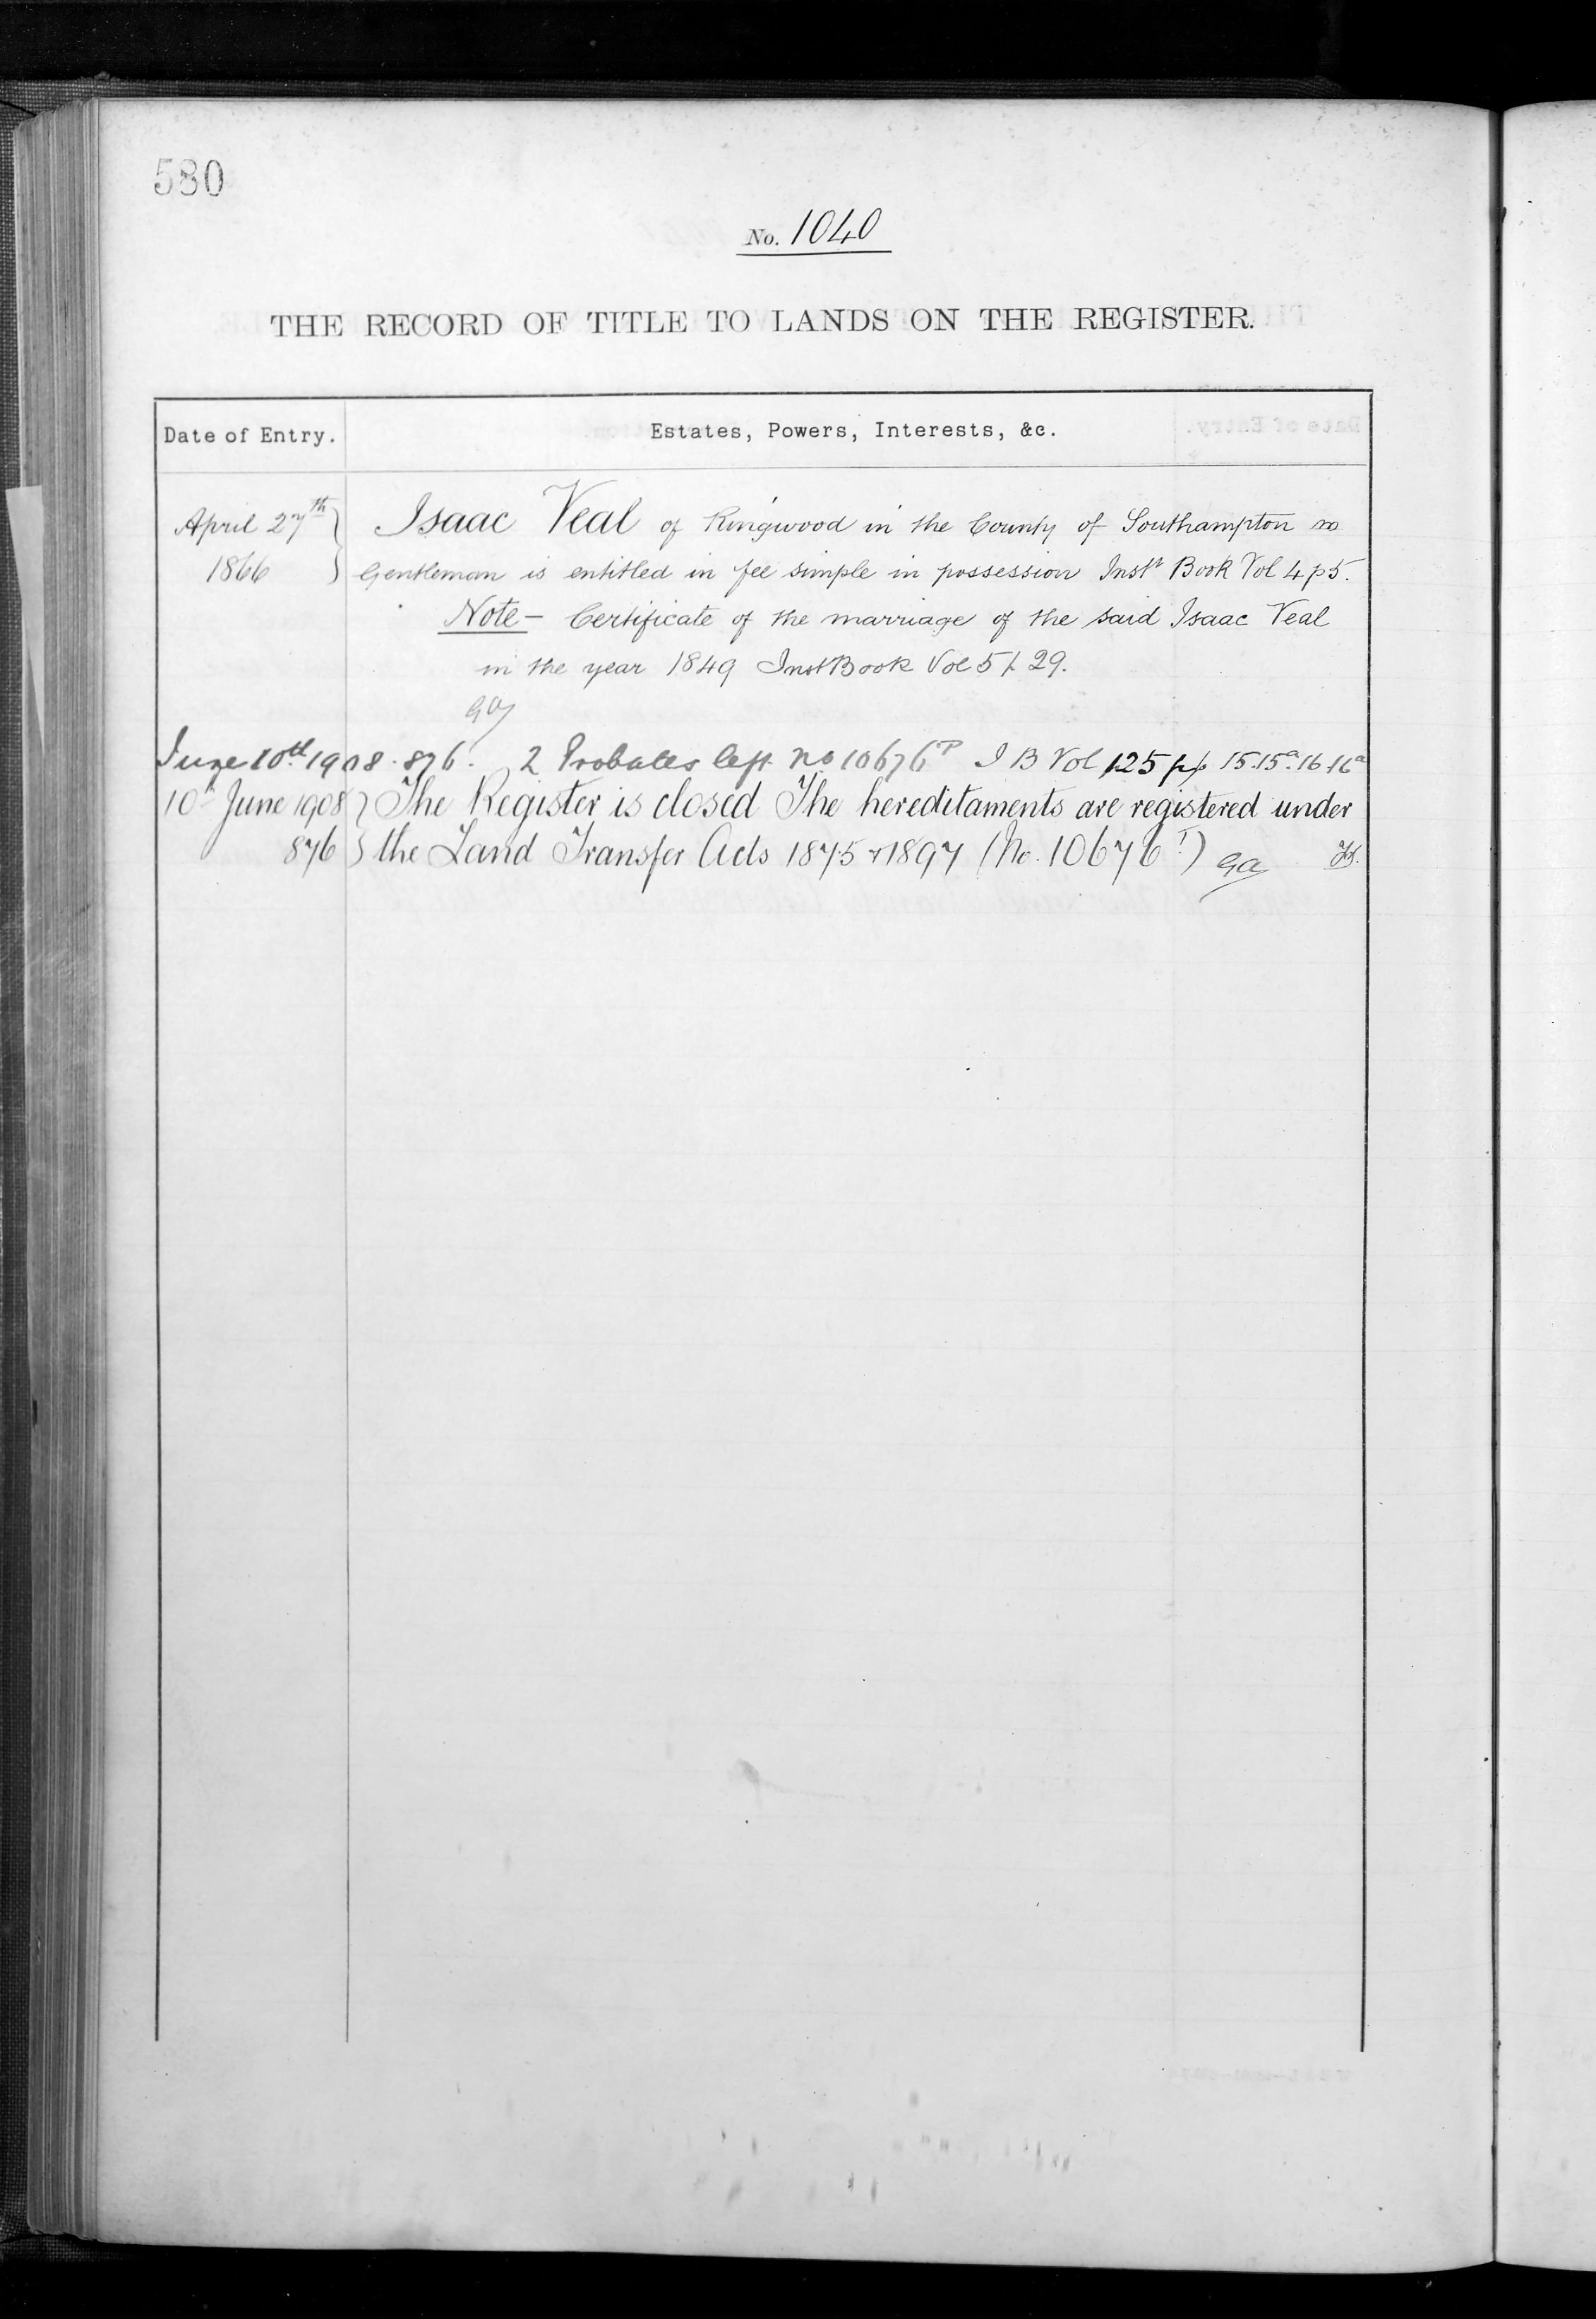 580
No. 1040
THE RECORD OF TITLE TO LANDS ON THE REGISTER.
Date of Entry. Estates, Powers, Interests, &c.
April 27th 1866 Isaac Veal of Ringwood in the County of Southampton
Gentleman is entitled in fee simple in possession Inst Book Vol 4 p 5.
Note - Certificate of the marriage of the said Isaac Veal
in the year 1849 Inst Book Vol 5 p 29.
GA
June 10th 1908. 876. 2 Probates left No 10676P I B Vol 125 pp 15.15a.16.16a
10th June 1908 The Register is closed The hereditaments are registered under
876 the Land Transfer Acts 1875 & 1897 (No. 10676T) GA